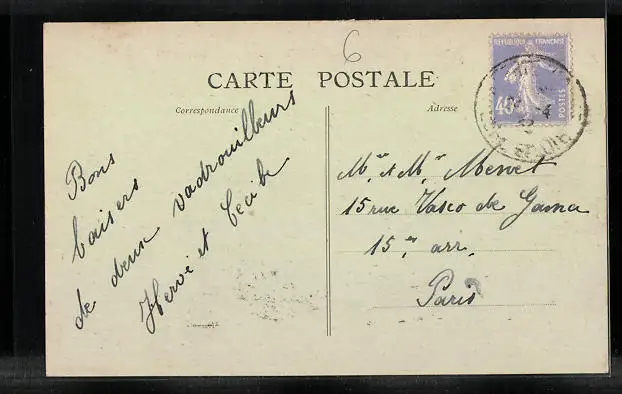 6
CARTE POSTALE
Correspondance
Adresse
REPUBLIQUE FRANÇAISE
40c
POSTES
Bons
baisers
de deux vadrouilleurs
Hervé et Cécile
Mr et Me Mervet
15 rue Vasco de Gama
15me arr.
Paris